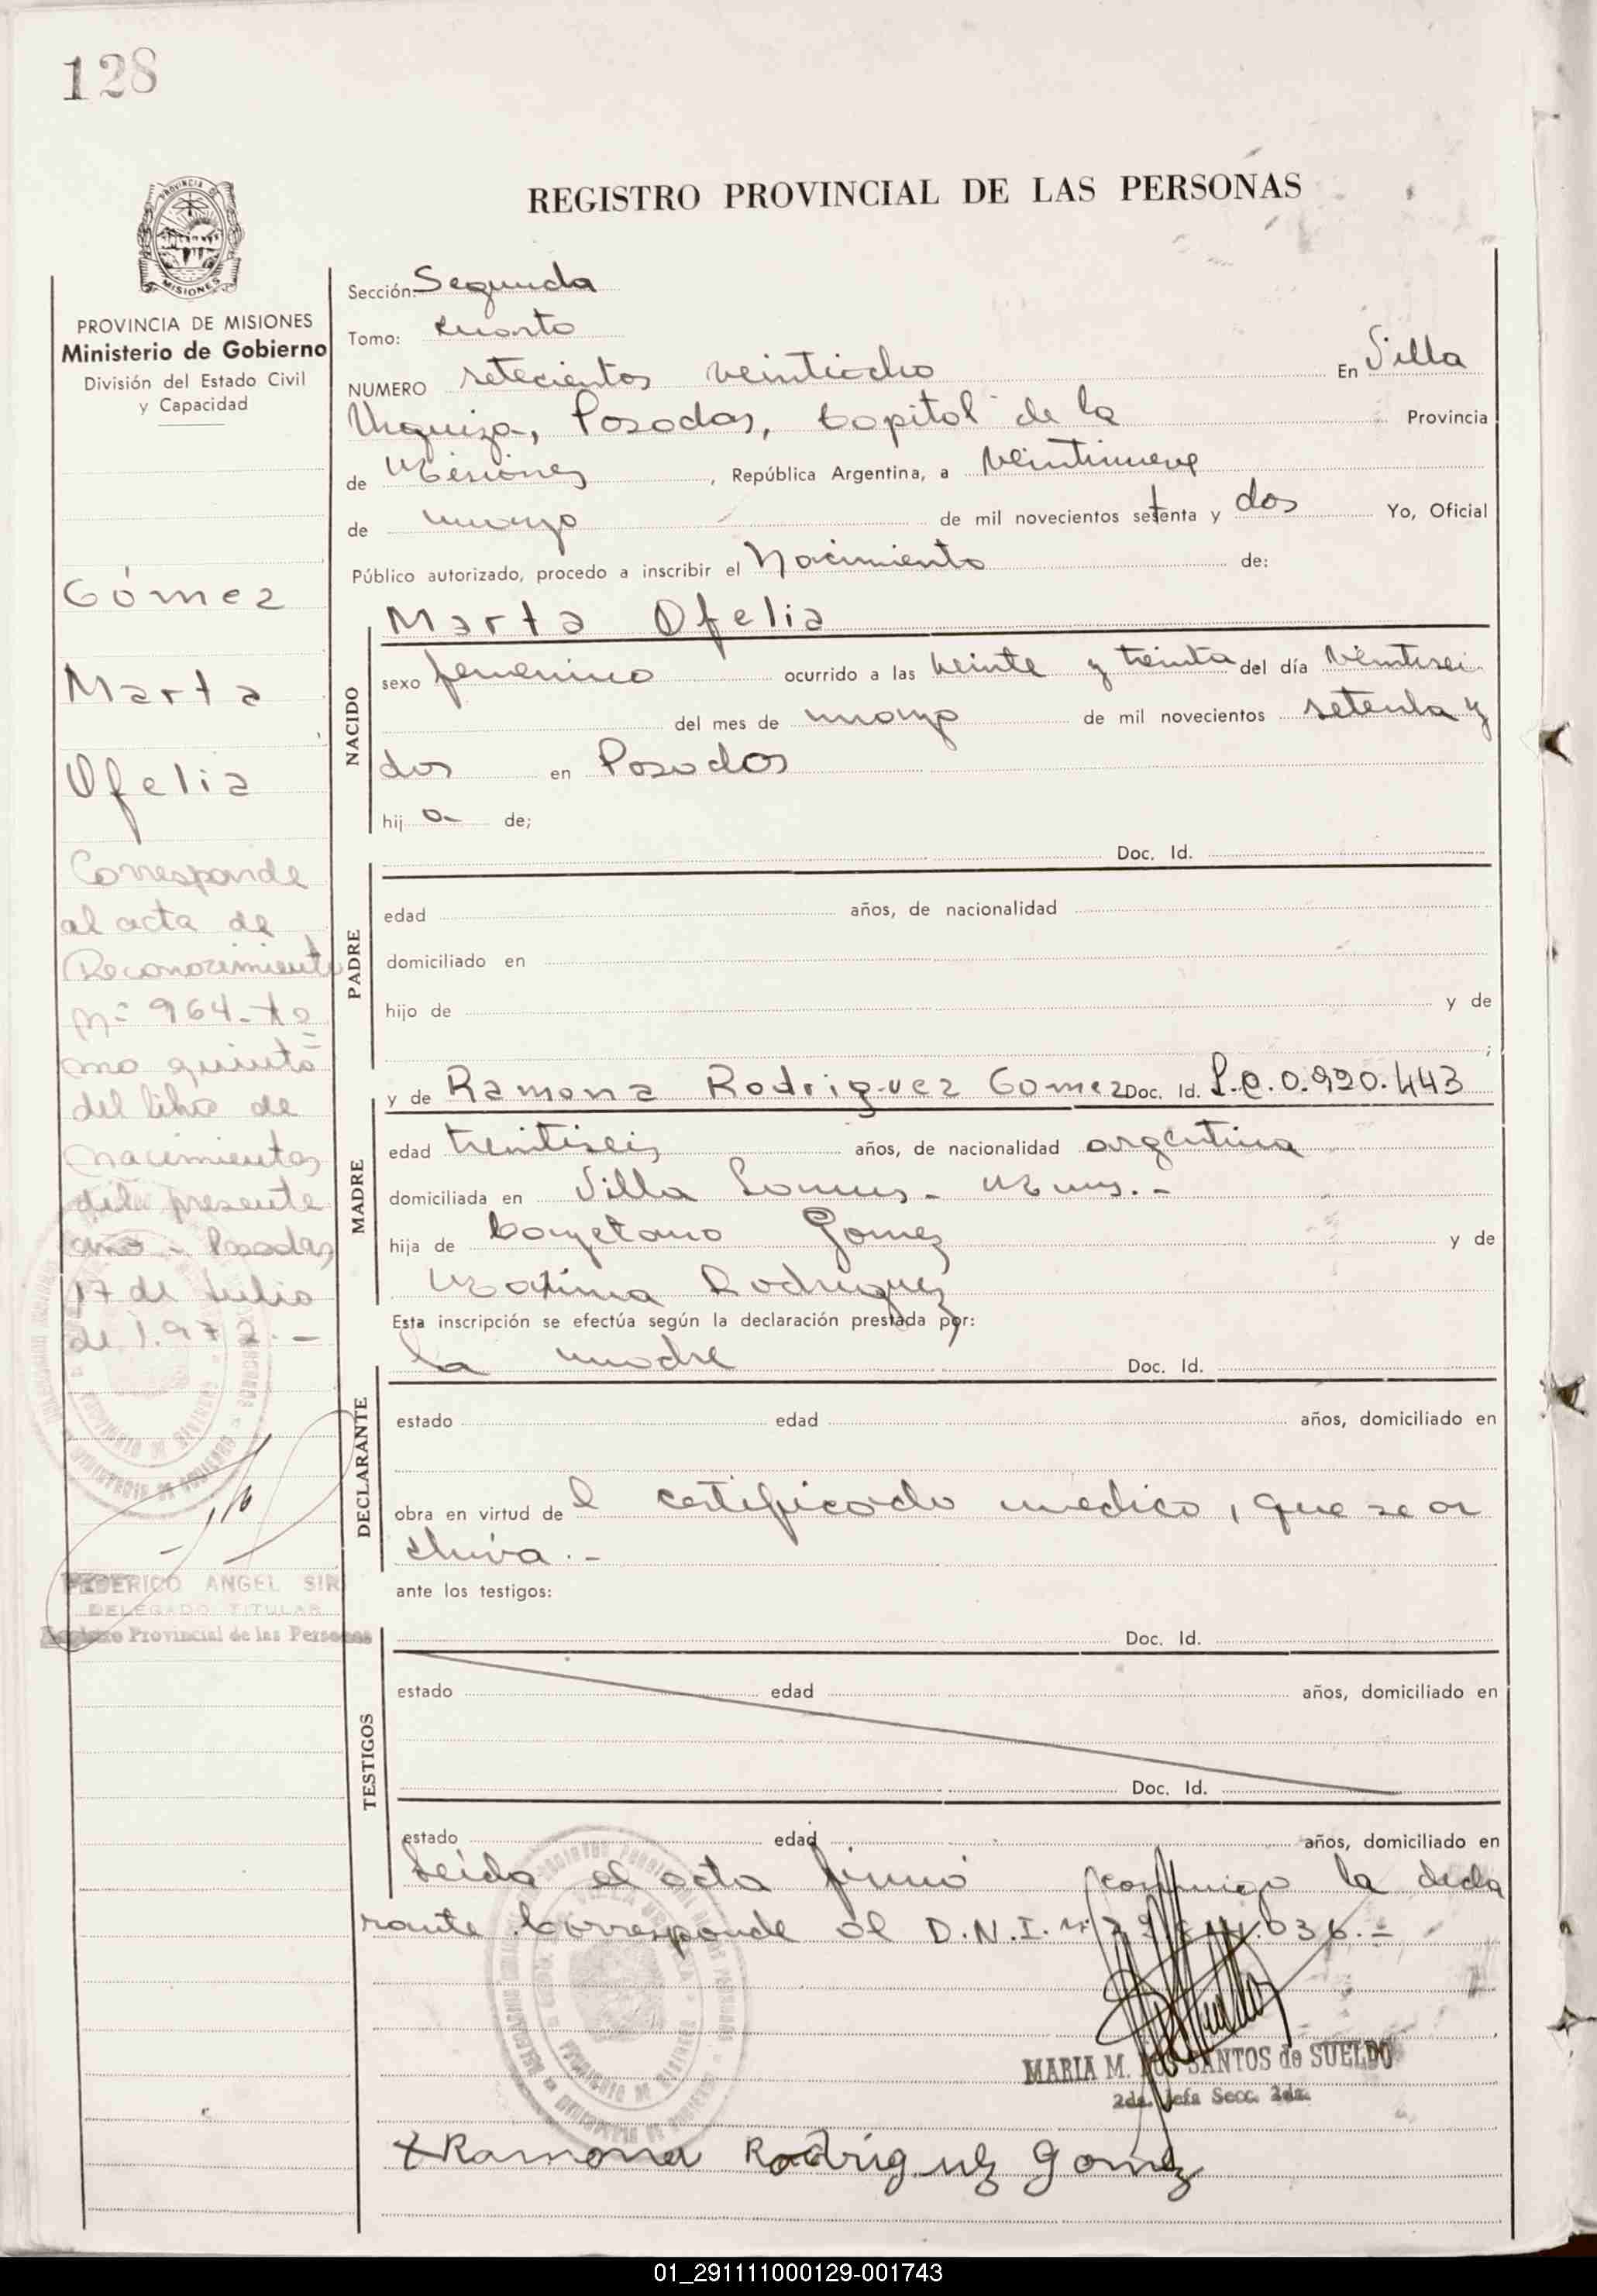 128
REGISTRO PROVINCIAL DE LAS PERSONAS
PROVINCIA DE MISIONES
Ministerio de Gobierno
División del Estado Civil
y Capacidad
Gómez
Marta
Ofelia
Corresponde
al acta de
Reconocimiento
Nº 964 - to
mo quinto
del libro de
nacimientos
del presente
año - Posadas,
17 de Julio
de 1.972. -
FEDERICO ANGEL SIR
DELEGADO TITULAR
Registro Provincial de las Personas
Sección: Segunda
Tomo: cuarto
NUMERO setecientos veintiocho En Villa
Urquiza, Posadas, Capital de la Provincia
de Misiones, República Argentina, a veintinueve
de mayo de mil novecientos setenta y dos Yo, Oficial
Público autorizado, procedo a inscribir el Nacimiento de:
Marta Ofelia
NACIDO
sexo femenino ocurrido a las veinte y treinta del día veintisei
del mes de mayo de mil novecientos setenta y
dos en Posadas
hij a de;
Doc. Id.
PADRE
edad años, de nacionalidad
domiciliado en
hijo de y de
;
y de Ramona Rodriguez Gomez Doc. Id. L.C. 0.920.443
MADRE
edad treintiseis años, de nacionalidad argentina
domiciliada en Villa
hija de Cayetano Gomez y de
Maxima Rodriguez
Esta inscripción se efectúa según la declaración prestada por:
la madre Doc. Id.
DECLARANTE
estado edad años, domiciliado en
obra en virtud de l certificado medico, que se ar
chiva. -
ante los testigos:
Doc. Id.
TESTIGOS
estado edad años, domiciliado en
Doc. Id.
estado edad años, domiciliado en
Leída el acta firmó conmigo la decla
rante. Corresponde al D.N.I. 036. =
MARIA M. DOS SANTOS de SUELDO
2da. Jefa Secc. 2da.
Ramona Rodriguez gomez
01_291111000129-001743